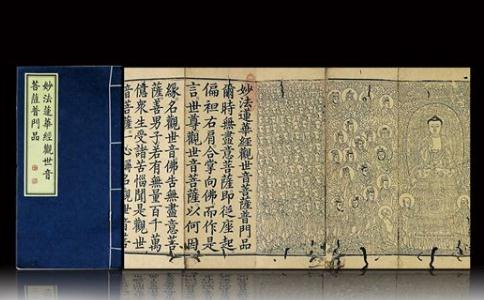 妙法蓮華經觀世音
菩薩普門品
妙法蓮華經觀世音菩薩普門品
爾時無盡意菩薩即從座起
偏袒右肩合掌向佛而作是
言世尊觀世音菩薩以何因
緣名觀世音佛告無盡意菩
薩善男子若有無量百千萬
億衆生受諸苦惱聞是觀世
音菩薩一心稱名觀世音菩